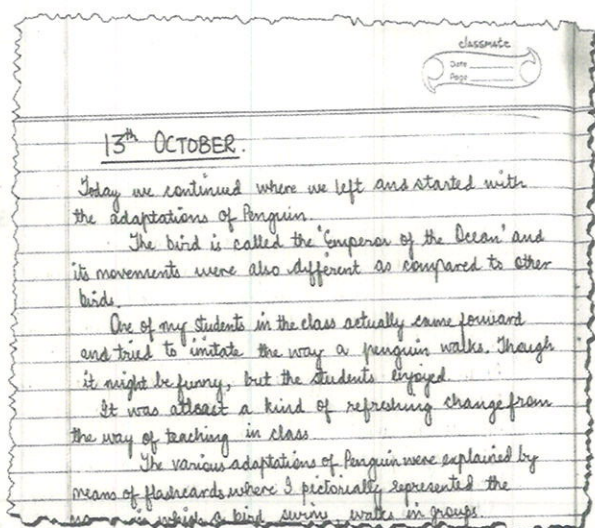 classmate
Date
Page
13th OCTOBER.
Today we continued where we left and started with
the adaptations of Penguin.
The bird is called the 'Emperor of the Ocean' and
its movements were also different as compared to other
birds.
One of my students in the class actually came forward
and tried to imitate the way a penguin walks. Though
it might be funny, but the students enjoyed.
It was atleast a kind of refreshing change from
the way of teaching in class.
The various adaptations of Penguin were explained by
means of flashcards where I pictorially represented the
in which a bird swims, walks in groups.